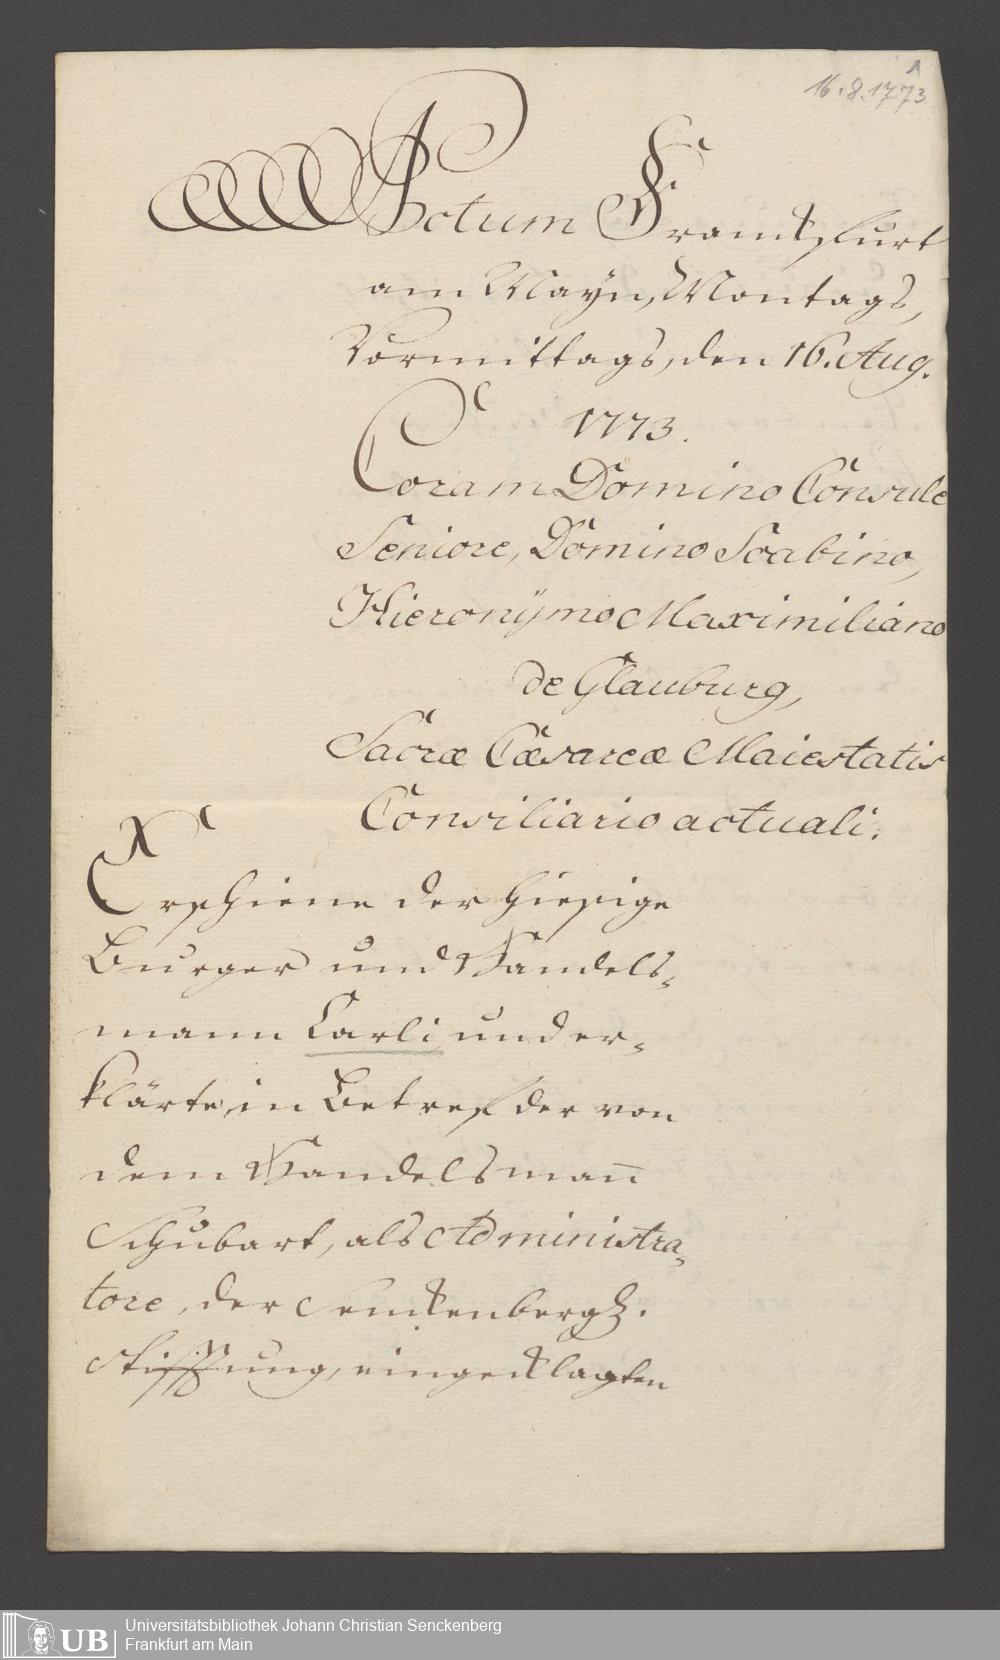 1
16.8.1773
Actum Franckfurt
am Mayn, Montags,
Vormittags, den 16. Aug.
1773.
Coram Domino Consule
Seniore, Domino Scabino,
Hieronÿmo Maximiliano
de Glauburg,
Sacræ Cæsareæ Maiestatis
Consiliario actuali.
Erschiene der hiesige
Burger und Handels-
mann Carli und er-
klärte, in Betref der von
dem Handelsmañ
Schubart, als Administra-
tore, der Senckenbergl.
Stifftung, eingecklagten
UB
Universitätsbibliothek Johann Christian Senckenberg
Frankfurt am Main